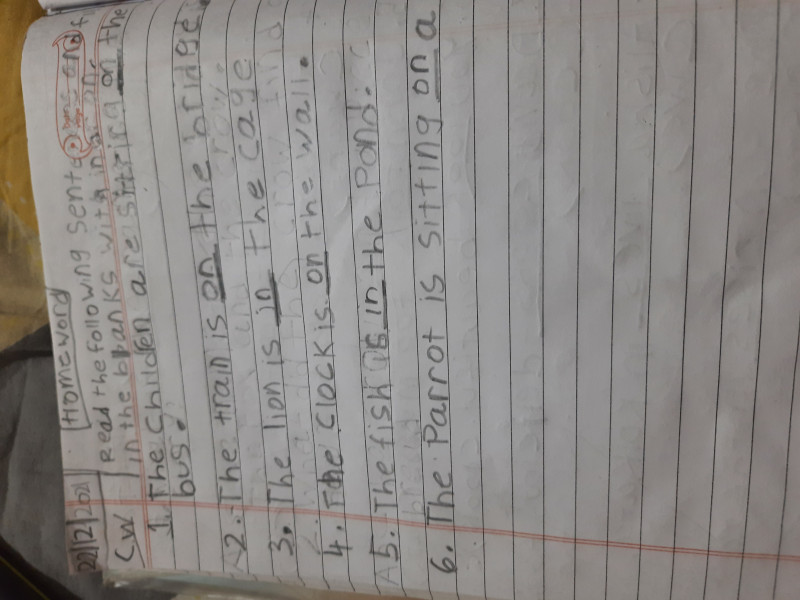 22/12/2021 Homeword
CW Read the following sente and f
in the blanks with in or on
1. The Children are sitting on the
bus.
2. The train is on the bridge.
3. The lion is in the cage
4. The clock is on the wall.
5. The fish is in the Pond.
6. The Parrot is sitting on a